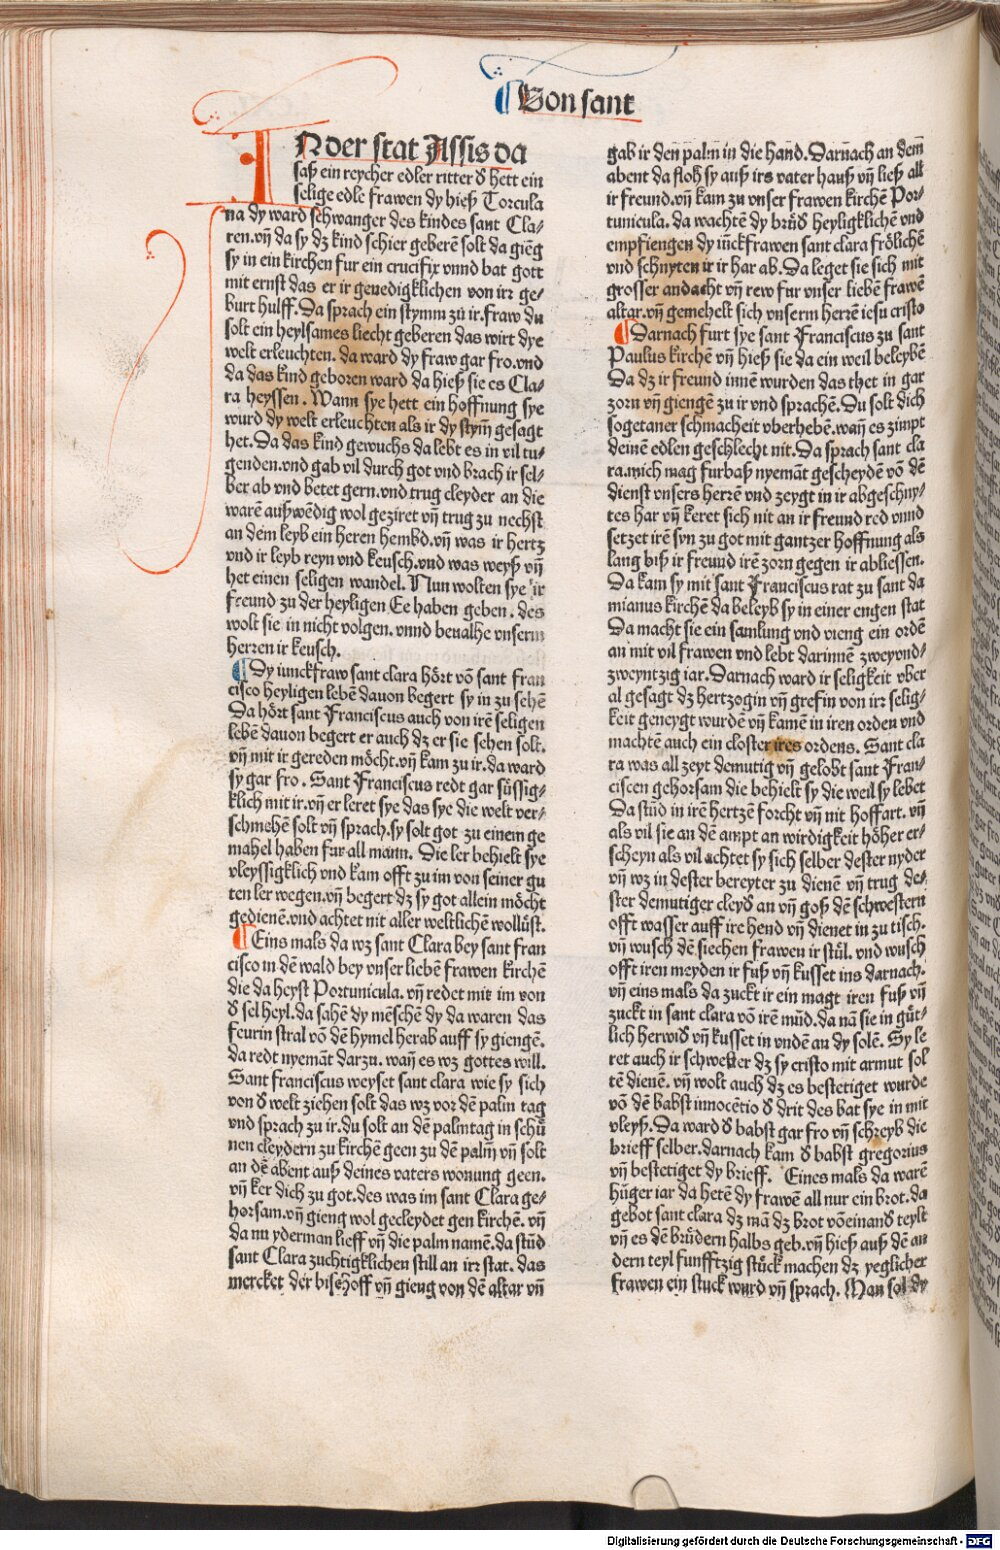 Von sant
IN der stat Assis da
saß ein reycher edler ritter ď hett ein
selige edle frawen dy hieß Torcula
na dy ward schwanger des kindes sant Cla-
ren.vñ da sy dz kind schier geberē solt da giēg
sy in ein kirchen fur ein crucifix vnnd bat gott
mit ernst das er ir genedigklichen von irr ge-
burt hulff. Da sprach ein stymm zu ir.fraw du
solt ein heylsames liecht geberen das wirt dye
welt erleuchten. da ward dy fraw gar fro.vnd
da das kind geboren ward da hieß sie es Cla-
ra heyssen. Wann sye hett ein hoffnung sye
wurd dy welt erleuchten als ir dy stym̄ gesagt
het. Da das kind gewuchs da lebt es in vil tu-
genden.vnd gab vil durch got vnd brach ir sel-
ber ab vnd betet gern.vnd trug cleyder an die
warē außwēdig wol geziret vñ trug zu nechst
an dem leyb ein heren hembd.vñ was ir hertz
vnd ir leyb reyn vnd keusch.vnd was weyß vñ
het einen seligen wandel. Nun wolten sye ir
freund zu der heyligen Ee haben geben. des
wolt sie in nicht volgen. vnnd beualhe vnserm
herren ir keusch.
Dy iunckfraw sant clara hört vō sant fran
cisco heyligen lebē davon begert sy in zu sehē
Da hört sant Franciscus auch von irē seligen
lebē davon begert er auch dz er sie sehen solt.
vñ mit ir gereden möcht.vñ kam zu ir.da ward
sy gar fro. Sant Franciscus redt gar süssig-
klich mit ir.vñ er leret sye das sye die welt ver-
schmehē solt vñ sprach.sy solt got zu einem ge
mahel haben fur all mann. Die ler behielt sye
vleyssigklich vnd kam offt zu im von seiner gu
ten ler wegen.vñ begert dz sy got allein möcht
gedienē.vnd achtet nit aller weltlichē wollüst.
Eins mals da wz sant Clara bey sant fran
cisco in dē wald bey vnser liebē frawen kirchē
die da heyst Portunicula. vñ redet mit im von
ď sel heyl.da sahē dy mēschē dy da waren das
feurin stral vō dē hymel herab auff sy giengē.
da redt nyemāt darzu. wañ es wz gottes will.
Sant franciscus weyset sant clara wie sy sich
von ď welt ziehen solt das wz vor dē palm tag
vnd sprach zu ir.du solt an dē palmtag in schü
nen cleydern zu kirchē geen zu dē palm̄ vñ solt
an dē abent auß deines vaters wonung geen.
vñ ker dich zu got.des was im sant Clara ge-
horsam.vñ gieng wol gecleydet gen kirchē. vñ
da nu yderman lieff vñ die palm namē.da stūd
sant Clara zuchtigklichen still an irr stat. das
mercket der bischoff vñ gieng von dē altar vñ
gab ir den palm̄ in die hand. Darnach an dem
abent da floh sy auß irs vater hauß vñ ließ all
ir freund.vñ kam zu vnser frawen kirchē Por-
tunicula. da wachtē dy brüď heyligklichē vnd
empfiengen dy iūckfrawen sant clara frölichē
vnd schnyten ir ir har ab. Da leget sie sich mit
grosser andacht vñ rew fur vnser liebē frawē
altar.vñ gemehelt sich vnserm herrē iesu cristo
Darnach furt sye sant Franciscus zu sant
Paulus kirchē vñ hieß sie da ein weil beleybē
Da dz ir freund innē wurden das thet in gar
zorn vñ giengē zu ir vnd sprachē. Du solt dich
sogetaner schmacheit vberhebē.wañ es zimpt
deinē edlen geschlecht nit. Da sprach sant cla
ra.mich mag furbaß nyemāt gescheydē vō dē
dienst vnsers herrē vnd zeygt in ir abgeschny-
tes har vñ keret sich nit an ir freund red vnnd
setzet irē syn zu got mit gantzer hoffnung als
lang biß ir freund irē zorn gegen ir abliessen.
Da kam sy mit sant Franciscus rat zu sant da
mianus kirchē da beleyb sy in einer engen stat
Da macht sie ein samlung vnd vieng ein ordē
an mit vil frawen vnd lebt darinnē zweyvnd-
zweyntzig iar. Darnach ward ir seligkeit vber
al gesagt dz hertzogin vñ grefin von irr selig-
keit geneygt wurdē vñ kamē in iren orden vnd
machtē auch ein closter ires ordens. Sant cla
ra was all zeyt demutig vñ gelobt sant Fran-
ciscen gehorsam die behielt sy die weil sy lebet
Da stūd in irē hertzē forcht vñ nit hoffart. vñ
als vil sie an dē ampt an wirdigkeit höher er-
scheyn als vil achtet sy sich selber dester nyder
vñ wz in dester bereyter zu dienē vñ trug de-
ster demutiger cleyd an vñ goß dē schwestern
offt wasser auff ire hend vñ dienet in zu tisch.
vñ wusch dē siechen frawen ir stül. vnd wusch
offt iren meyden ir fuß vñ kusset ins darnach.
vñ eins mals da zuckt ir ein magt iren fuß vñ
zuckt in sant clara vō irē mūd. da nā sie in güt-
lich herwid vñ kusset in vndē an dy solē. Sy le
ret auch ir schwester dz sy cristo mit armut sol
tē dienē. vñ wolt auch dz es bestetiget wurde
vō dē babst innocētio ď drit des bat sye in mit
vleyß. Da ward ď babst gar fro vñ schreyb die
brieff selber.darnach kam ď babst gregorius
vñ bestetiget dy brieff. Eines mals da warē
hūger iar da hetē dy frawē all nur ein brot. da
gebot sant clara dz mā dz brot vōeinanď teylt
vñ es dē brüdern halbs geb.vñ hieß auß dē an
dern teyl funfftzig stück machen dz yeglicher
frawen ein stuck wurd vñ sprach. Man sol dy
Digitalisierung gefördert durch die Deutsche Forschungsgemeinschaft - DFG